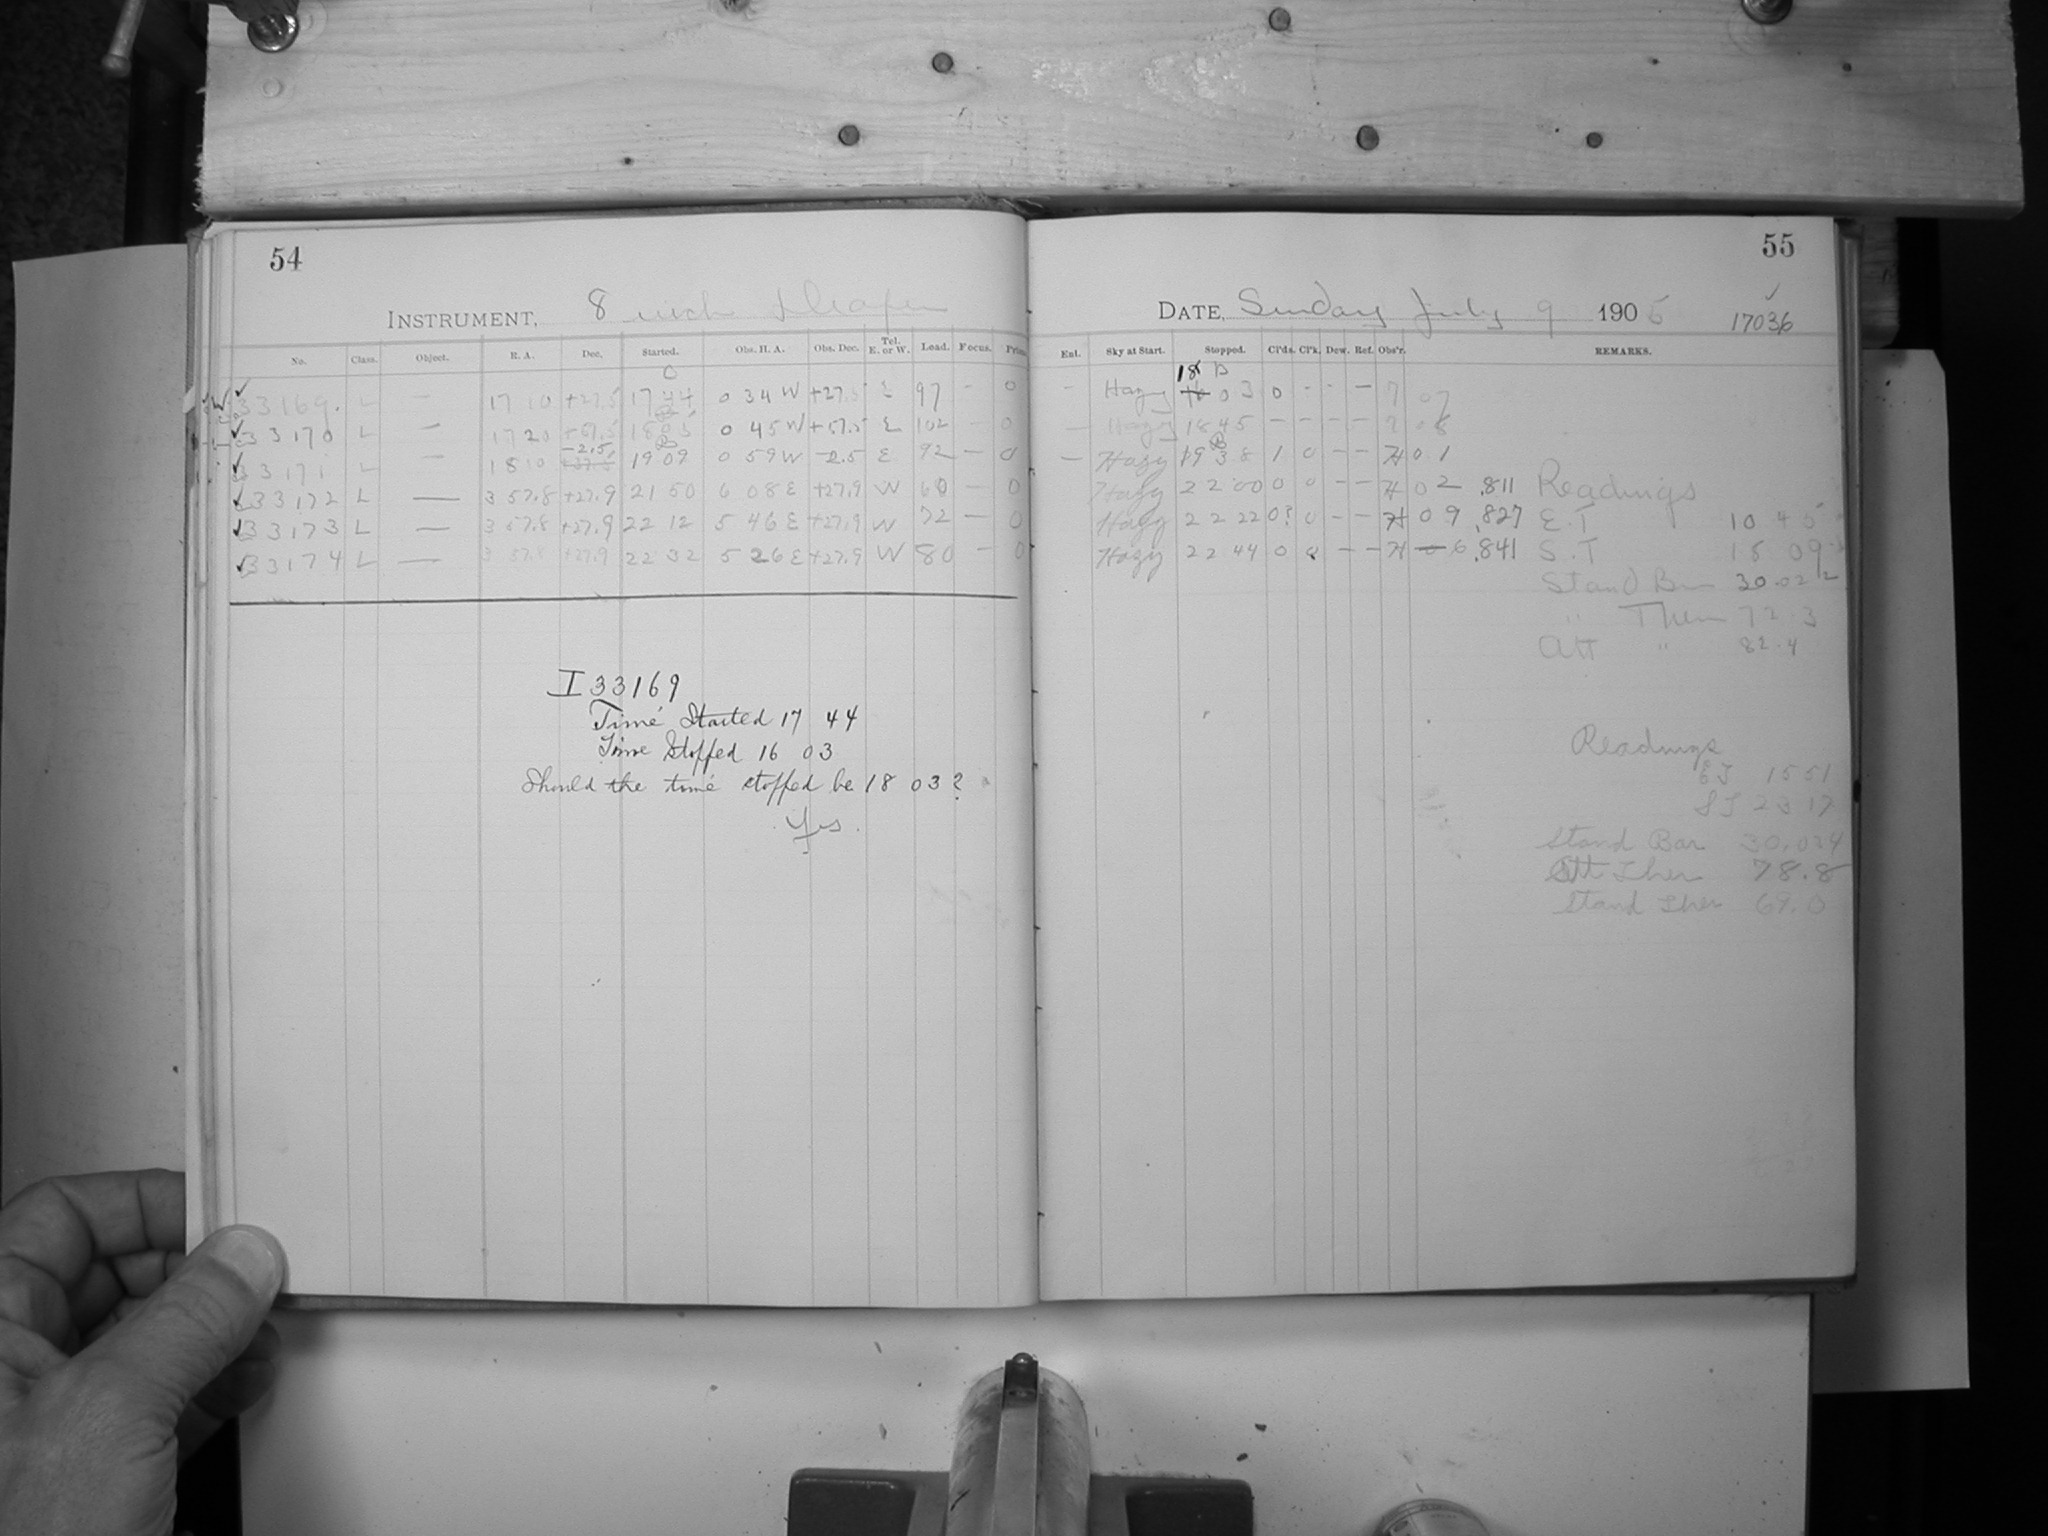 54
INSTRUMENT, 8 inch Draper
No. Class. Object. R. A. Dec. Started. Obs. H. A. Obs. Dec. Tel. E. or W. Lead. Focus.
33169. L — 17 10 +27.5 17 44 0 34 W +27.5 E 97 - 0
33170 L — 17 20 +57.5 18 05 0 45 W +57.5 E 102 - 0
-2.5
33171 L — 18 10 19 09 0 59 W -2.5 E 92 - 0
33172 L — 3 57.8 +27.9 21 50 6 08 E +27.9 W 60 - 0
33173 L — 3 57.8 +27.9 22 12 5 46 E +27.9 W 72 - 0
33174 L — 3 57.8 +27.9 22 32 5 26 E +27.9 W 80 - 0
I 33169
Time Started 17 44
Time Stopped 16 03
Should the time stopped be 18 03?
Yes.
55
DATE, Sunday July 9 1905 17036
Ent. Sky at Start. Stopped. Cl'ds. Cl'k. Dew. Ref. Obs'r. REMARKS.
18
— Hazy 16 03 0 - - — 07
— Hazy 18 45 — — — — 08
— Hazy 19 38 1 0 — — H 01
Hazy 22 00 0 0 — — H 02 .811
Hazy 22 22 0? — — H 09 .827
Hazy 22 44 0 0 — — H .841
Readings
E.T 10 45
S.T 15 09
Stand Bar 30.02
" Ther 72.3
Att " 82.4
Readings
ET 15 51
ST 23 17
Stand Bar 30.024
Att Ther 78.8
Stand Ther